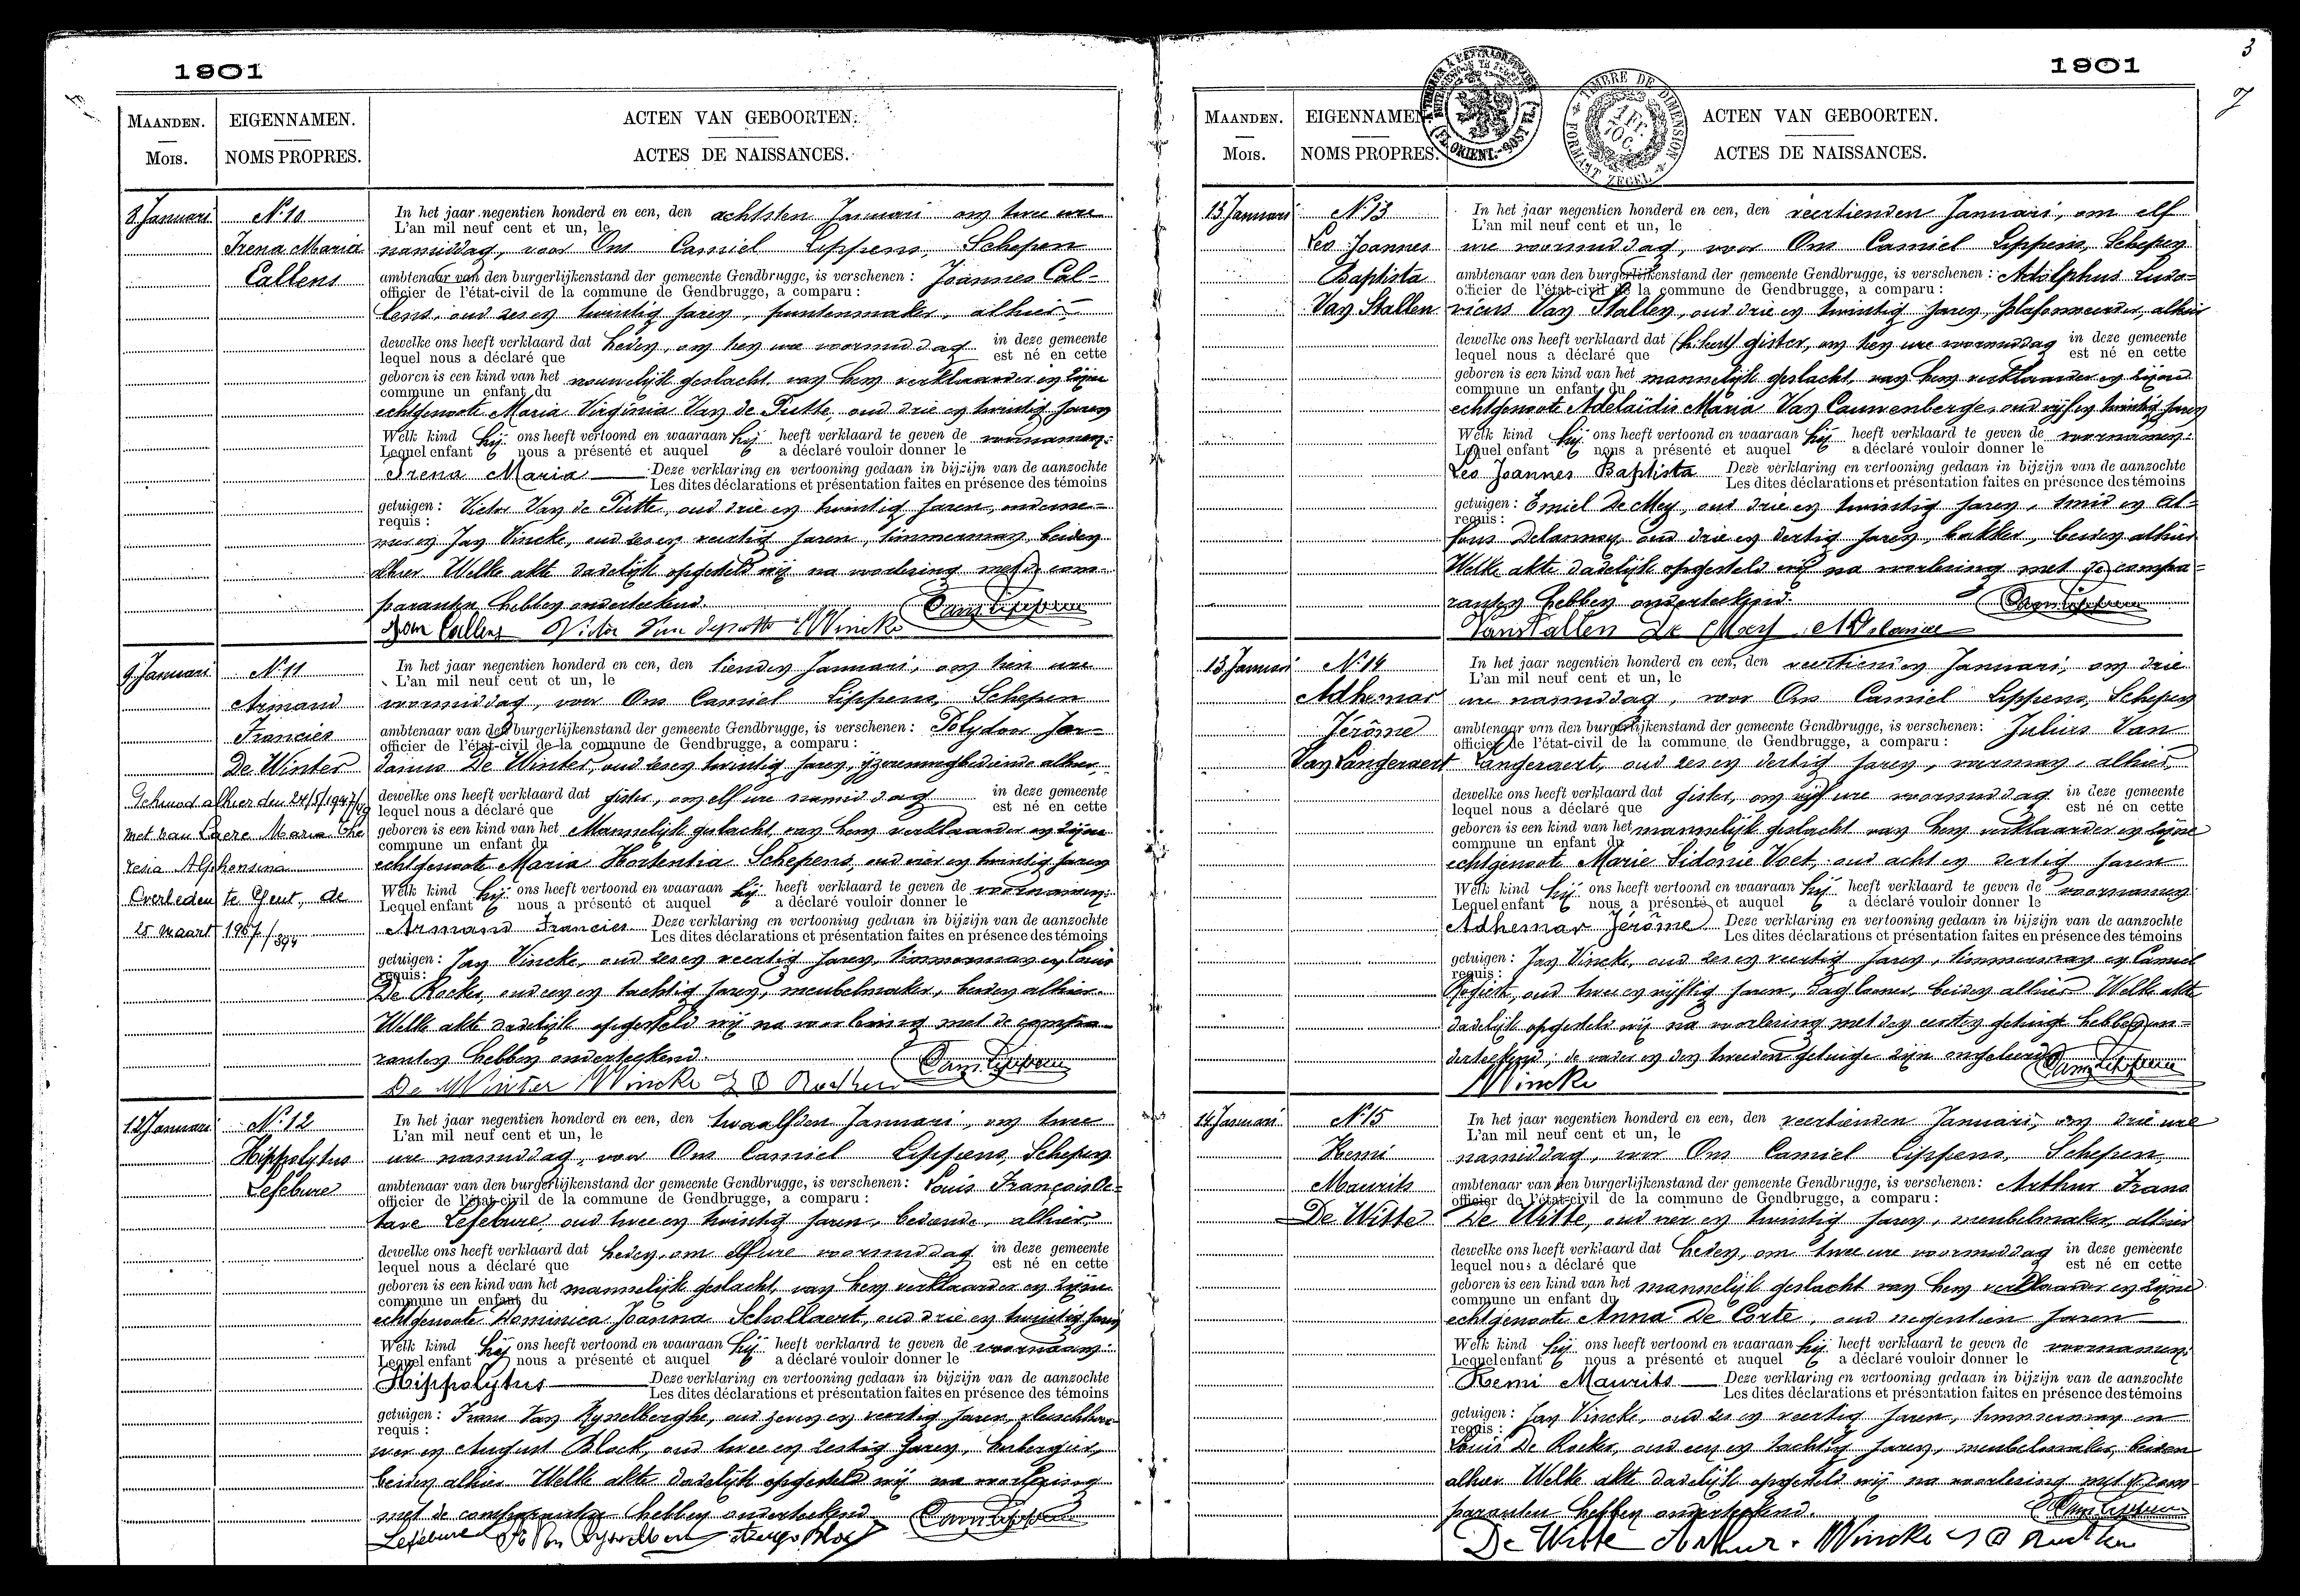 1901
MAANDEN.
Mois.
EIGENNAMEN.
NOMS PROPRES.
ACTEN VAN GEBOORTEN.
ACTES DE NAISSANCES.
8 Januari
N.º 10
Irena Maria
Callens
In het jaar negentien honderd en een, den achtsten Januari om twee ure
L'an mil neuf cent et un, le
namiddag, voor Ons Camiel Lippens, Schepen
ambtenaar van den burgerlijkenstand der gemeente Gendbrugge, is verschenen : Joannes Cal-
officier de l'état-civil de la commune de Gendbrugge, a comparu :
lens, oud zes en twintig jaren, puntenmaker, alhier
dewelke ons heeft verklaard dat heden, om ure voormiddag in deze gemeente
lequel nous a déclaré que est né en cette
geboren is een kind van het vrouwelijk geslacht van hem verklaarder en zijne
commune un enfant du
echtgenoote Maria Virginia Van de Putte, oud drie en twintig jaren
Welk kind hij ons heeft vertoond en waaraan hij heeft verklaard te geven de voornamen:
Lequel enfant nous a présenté et auquel a déclaré vouloir donner le
Irena Maria Deze verklaring en vertooning gedaan in bijzijn van de aanzochte
Les dites déclarations et présentation faites en présence des témoins
getuigen : Victor Van de Putte, oud drie en twintig jaren, onderne-
requis :
mer en Jan Vincke, oud zes en veertig jaren, timmerman, beiden
alhier Welke akte dadelijk opgesteld wij na voorlezing met de com-
paranten hebben onderteekend.
Jom Callens Victor Van deputte Vincke Cam Lippens
9 Januari
N.º 11
Armand
Francies
De Winter
Gehuwd alhier den 24/5/1947/
met van Laere Maria The
resia Alphonsina
Overleden te Gent, de
25 maart 1967/394
In het jaar negentien honderd en een, den tienden Januari, om tien ure
L'an mil neuf cent et un, le
voormiddag, voor Ons Camiel Lippens, Schepen
ambtenaar van den burgerlijkenstand der gemeente Gendbrugge, is verschenen : Polydoor Jor-
officier de l'état-civil de la commune de Gendbrugge, a comparu :
danus De Winter, oud zes en twintig jaren, ijzerenwegbediende alhier,
dewelke ons heeft verklaard dat gister, om elf ure namiddag in deze gemeente
lequel nous a déclaré que est né en cette
geboren is een kind van het Mannelijk geslacht, van hem verklaarder en zijne
commune un enfant du
echtgenoote Maria Hortentia Schepens, oud vier en twintig jaren
Welk kind hij ons heeft vertoond en waaraan hij heeft verklaard te geven de voornamen:
Lequel enfant nous a présenté et auquel a déclaré vouloir donner le
Armand Francies Deze verklaring en vertooning gedaan in bijzijn van de aanzochte
Les dites déclarations et présentation faites en présence des témoins
getuigen : Jan Vincke, oud zes en veertig jaren, timmerman en Louis
requis :
De Rocker, oud een en tachtig jaren, meubelmaker, beiden alhier.
Welke akte dadelijk opgesteld wij na voorlezing met de compa-
ranten hebben onderteekend.
De Winter Vincke Cam Lippens
12 Januari
N.º 12
Hippolytus
Lefebure
In het jaar negentien honderd en een, den twaalfden Januari, om twee
L'an mil neuf cent et un, le
ure namiddag, voor Ons Camiel Lippens, Schepen
ambtenaar van den burgerlijkenstand der gemeente Gendbrugge, is verschenen : Louis François Oc-
officier de l'état-civil de la commune de Gendbrugge, a comparu :
tave Lefebure, oud twee en twintig jaren, bediende, alhier
dewelke ons heeft verklaard dat heden, om elf ure voormiddag in deze gemeente
lequel nous a déclaré que est né en cette
geboren is een kind van het mannelijk geslacht, van hem verklaarder en zijne
commune un enfant du
echtgenoote Dominica Joanna Schollaert, oud drie en twintig jaren
Welk kind hij ons heeft vertoond en waaraan hij heeft verklaard te geven de voornaam:
Lequel enfant nous a présenté et auquel a déclaré vouloir donner le
Hippolytus Deze verklaring en vertooning gedaan in bijzijn van de aanzochte
Les dites déclarations et présentation faites en présence des témoins
getuigen : Frans Van Rysselberghe, oud zeven en veertig jaren, vleeschhou-
requis :
wer en August Block, oud twee en zestig jaren, herbergier,
beiden alhier Welke akte dadelijk opgesteld wij na voorlezing
met de comparanten hebben onderteekend
Lefebure Cam Lippens
3
7
1901
1 Fr. 70 C.
TIMBRE DE DIMENSION
FORMAAT ZEGEL
MAANDEN.
Mois.
EIGENNAMEN.
NOMS PROPRES.
ACTEN VAN GEBOORTEN.
ACTES DE NAISSANCES.
13 Januari
N.º 13
Leo Joannes
Baptista
Van Stallen
In het jaar negentien honderd en een, den veertienden Januari, om elf
L'an mil neuf cent et un, le
ure voormiddag, voor Ons Camiel Lippens, Schepen
ambtenaar van den burgerlijkenstand der gemeente Gendbrugge, is verschenen : Adolphus Ludo-
officier de l'état-civil de la commune de Gendbrugge, a comparu :
vicus Van Stallen, oud drie en twintig jaren, plafonneerder, alhier
dewelke ons heeft verklaard dat gister, om ure voormiddag in deze gemeente
lequel nous a déclaré que est né en cette
geboren is een kind van het mannelijk geslacht, van hem verklaarder en zijne
commune un enfant du
echtgenoote Adelaïdis Maria Van Cauwenberge, oud vijf en twintig jaren
Welk kind hij ons heeft vertoond en waaraan hij heeft verklaard te geven de voornamen:
Lequel enfant nous a présenté et auquel a déclaré vouloir donner le
Leo Joannes Baptista Deze verklaring en vertooning gedaan in bijzijn van de aanzochte
Les dites déclarations et présentation faites en présence des témoins
getuigen : Emiel De Mey, oud drie en twintig jaren, smid en Al-
requis :
fons Delannoy, oud drie en dertig jaren, bakker, beiden alhier
Welke akte dadelijk opgesteld wij na voorlezing met de compa-
ranten hebben onderteekend.
Van Stallen De Mey A Delannoy Cam Lippens
13 Januari
N.º 14
Adhemar
Jérôme
Van Langeraert
In het jaar negentien honderd en een, den veertienden Januari, om drie
L'an mil neuf cent et un, le
ure namiddag, voor Ons Camiel Lippens, Schepen
ambtenaar van den burgerlijkenstand der gemeente Gendbrugge, is verschenen: Julius Van
officier de l'état-civil de la commune de Gendbrugge, a comparu :
Langeraert, oud zes en dertig jaren, voerman, alhier,
dewelke ons heeft verklaard dat gister, om vijf ure voormiddag in deze gemeente
lequel nous a déclaré que est né en cette
geboren is een kind van het mannelijk geslacht van hem verklaarder en zijne
commune un enfant du
echtgenoote Marie Sidonie Voet, oud acht en dertig jaren
Welk kind hij ons heeft vertoond en waaraan hij heeft verklaard te geven de voornamen:
Lequel enfant nous a présenté et auquel a déclaré vouloir donner le
Adhemar Jérôme Deze verklaring en vertooning gedaan in bijzijn van de aanzochte
Les dites déclarations et présentation faites en présence des témoins
getuigen : Jan Vincke, oud zes en veertig jaren, timmerman en Camiel
requis :
oud twee en vijftig jaren, daglooner, beiden alhier Welke akte
dadelijk opgesteld wij na voorlezing met den eersten getuige hebben on-
derteekend; de vader en den tweeden getuige zijn ongeleerd
Vincke Cam Lippens
14 Januari
N.º 15
Remi
Maurits
De Witte
In het jaar negentien honderd en een, den veertienden Januari, om drie ure
L'an mil neuf cent et un, le
namiddag, voor Ons Camiel Lippens, Schepen,
ambtenaar van den burgerlijkenstand der gemeente Gendbrugge, is verschenen: Arthur Frans
officier de l'état-civil de la commune de Gendbrugge, a comparu :
De Witte, oud vier en twintig jaren, meubelmaker, alhier
dewelke ons heeft verklaard dat heden, om twee ure voormiddag in deze gemeente
lequel nous a déclaré que est né en cette
geboren is een kind van het mannelijk geslacht van hem verklaarder en zijne
commune un enfant du
echtgenoote Anna De Corte, oud negentien jaren
Welk kind hij ons heeft vertoond en waaraan hij heeft verklaard te geven de voornamen:
Lequel enfant nous a présenté et auquel a déclaré vouloir donner le
Remi Maurits Deze verklaring en vertooning gedaan in bijzijn van de aanzochte
Les dites déclarations et présentation faites en présence des témoins
getuigen : Jan Vincke, oud zes en veertig jaren, timmerman en
requis :
Louis De Rocker, oud een en tachtig jaren, meubelmaker, beiden
alhier Welke akte dadelijk opgesteld wij na voorlezing met de com-
paranten hebben onderteekend.
De Witte Arthur. Vincke Cam Lippens